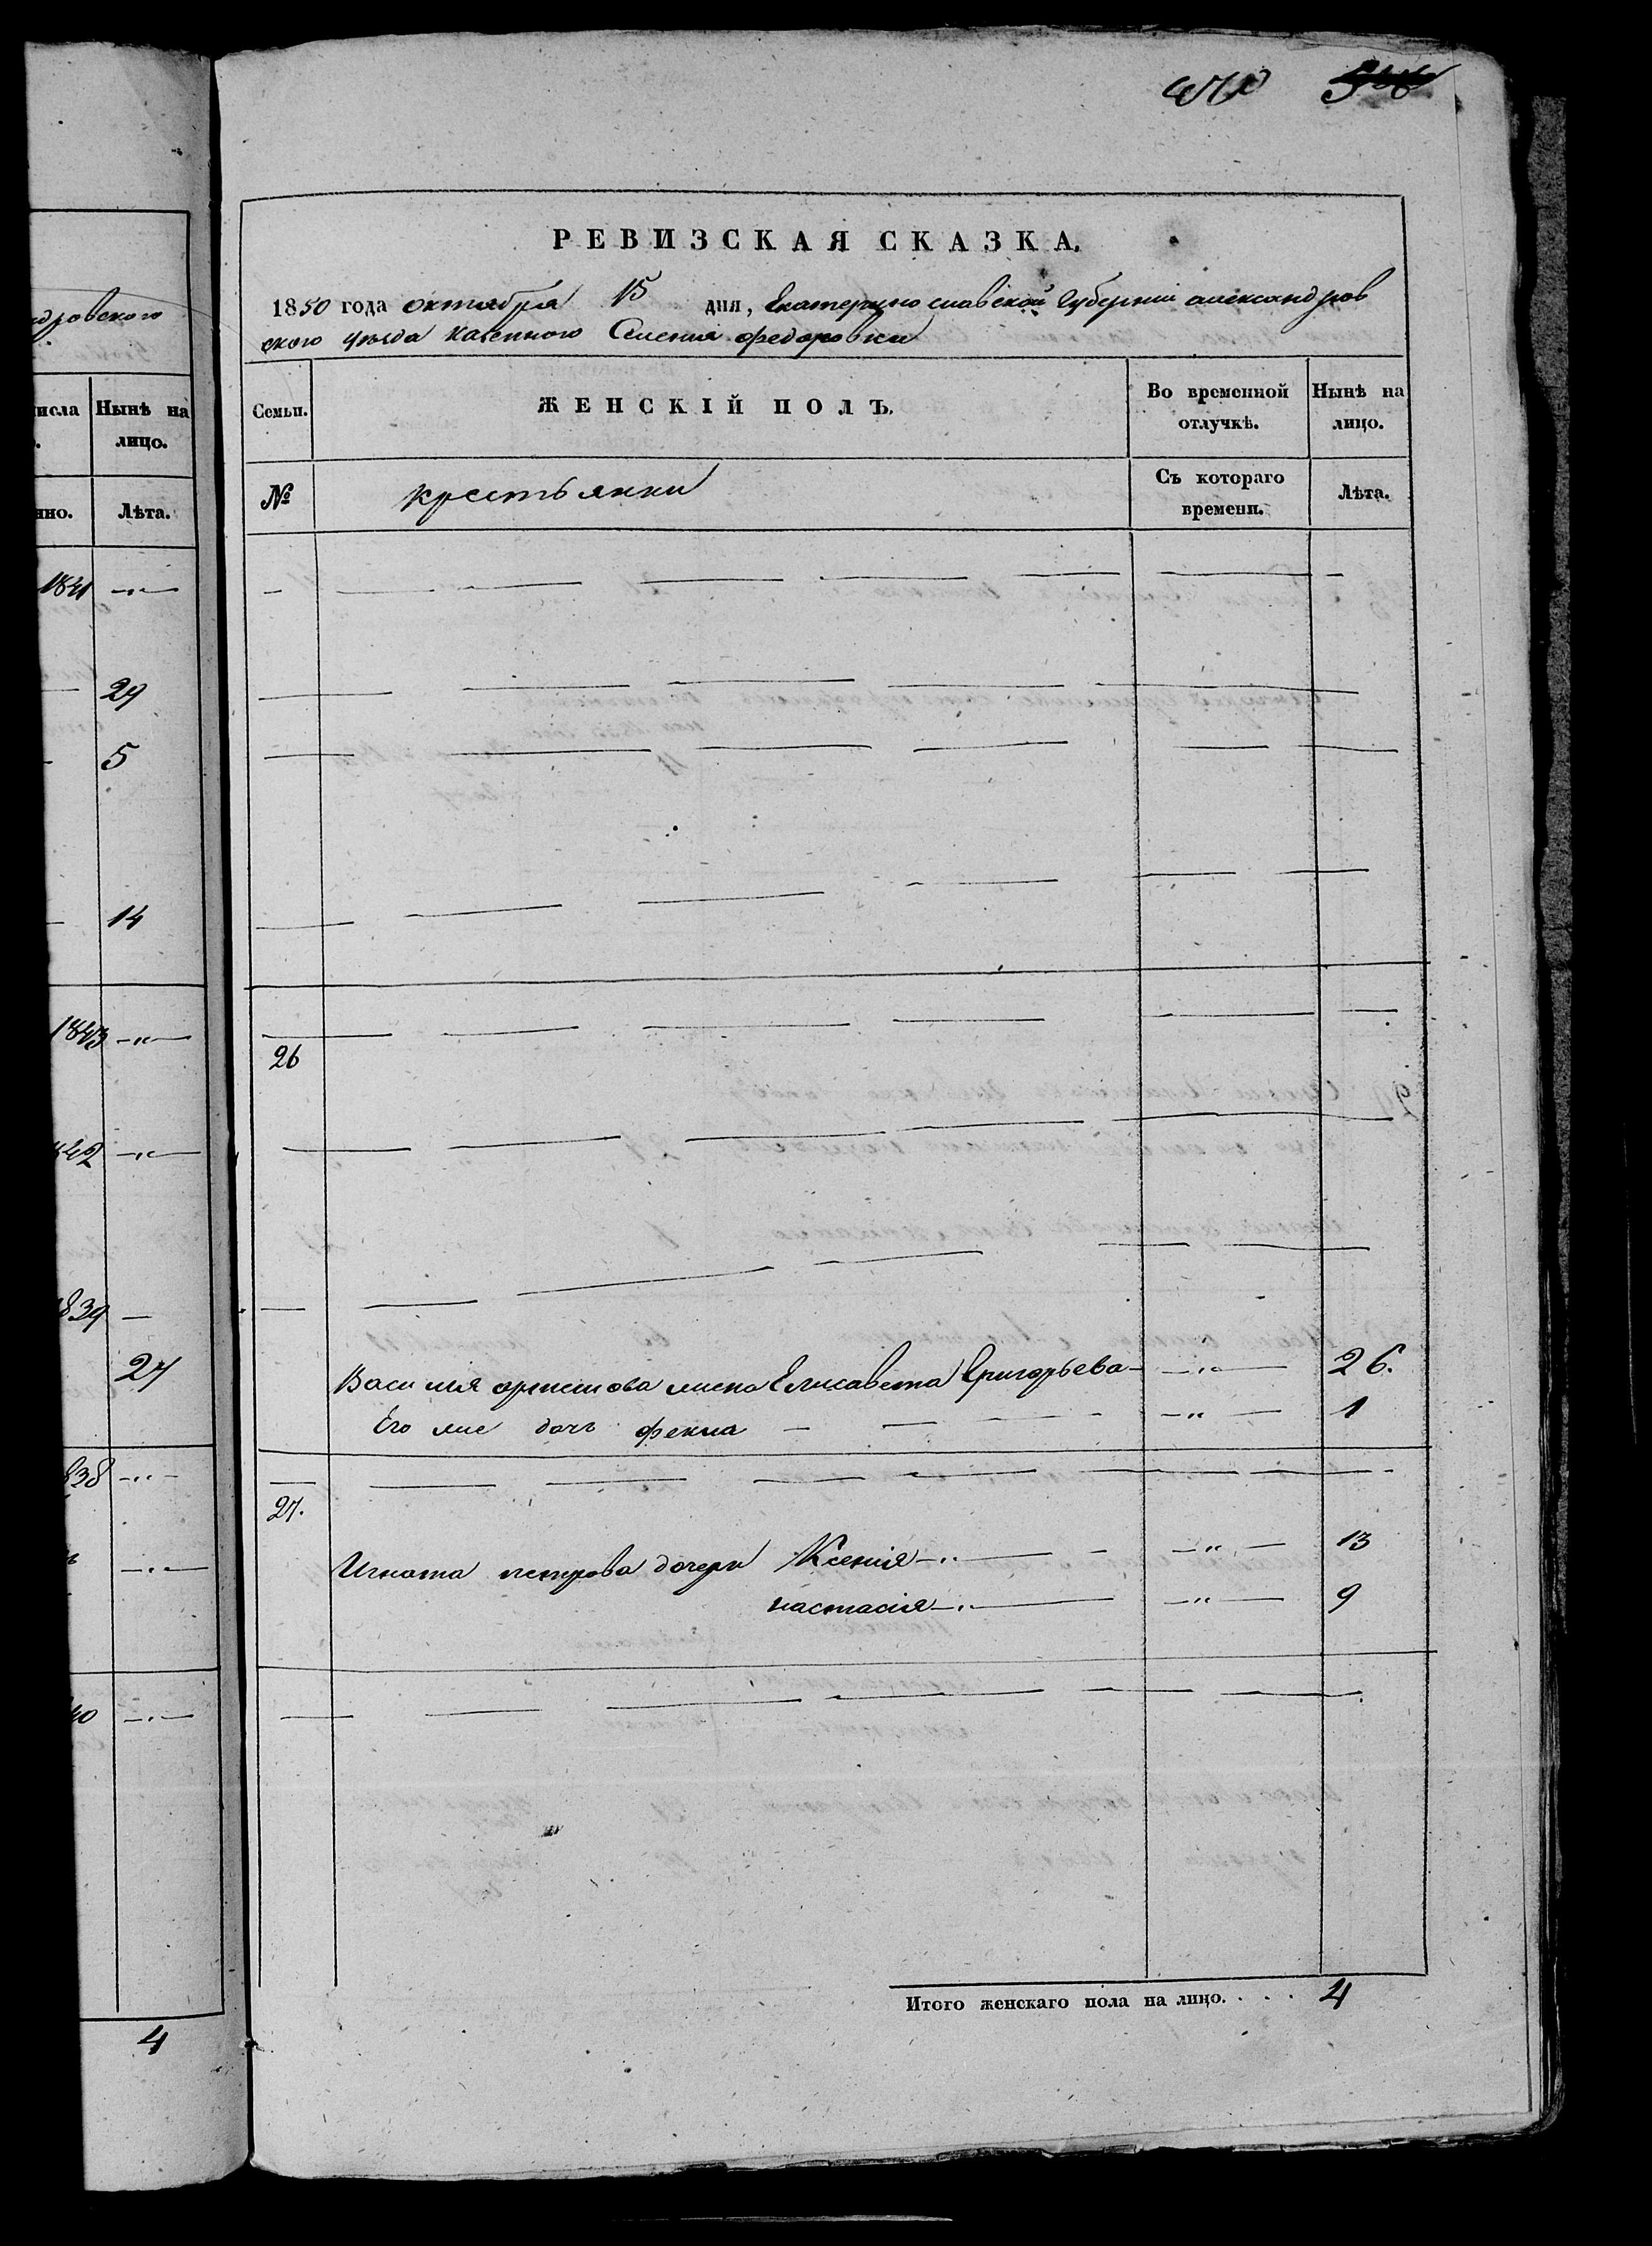 ндровскаго
числа Нынѣ на
лицо.
нно. Лѣта.
1841 —"—
29
5
14
1843 —"—
842 —"—
839 —
27
838 —"—
—"—
40 —"—
4
РЕВИЗСКАЯ СКАЗКА.
1850 года октября 15 дня, Екатеринославской Губернии александров
ского уезда казенного Селения федоровки
Семьи. ЖЕНСКІЙ ПОЛЪ. Во временной отлучкѣ. Нынѣ на лицо.
№ крестьянки Съ котораго времени. Лѣта.
26
Василия жена Елисавета Григорьева —"— 26.
Его же дочь фекла — —"— 1
27.
Игната петрова дочери Ксения —"— —"— 13
настасия —"— —"— 9
Итого женскаго пола на лицо. . . . 4